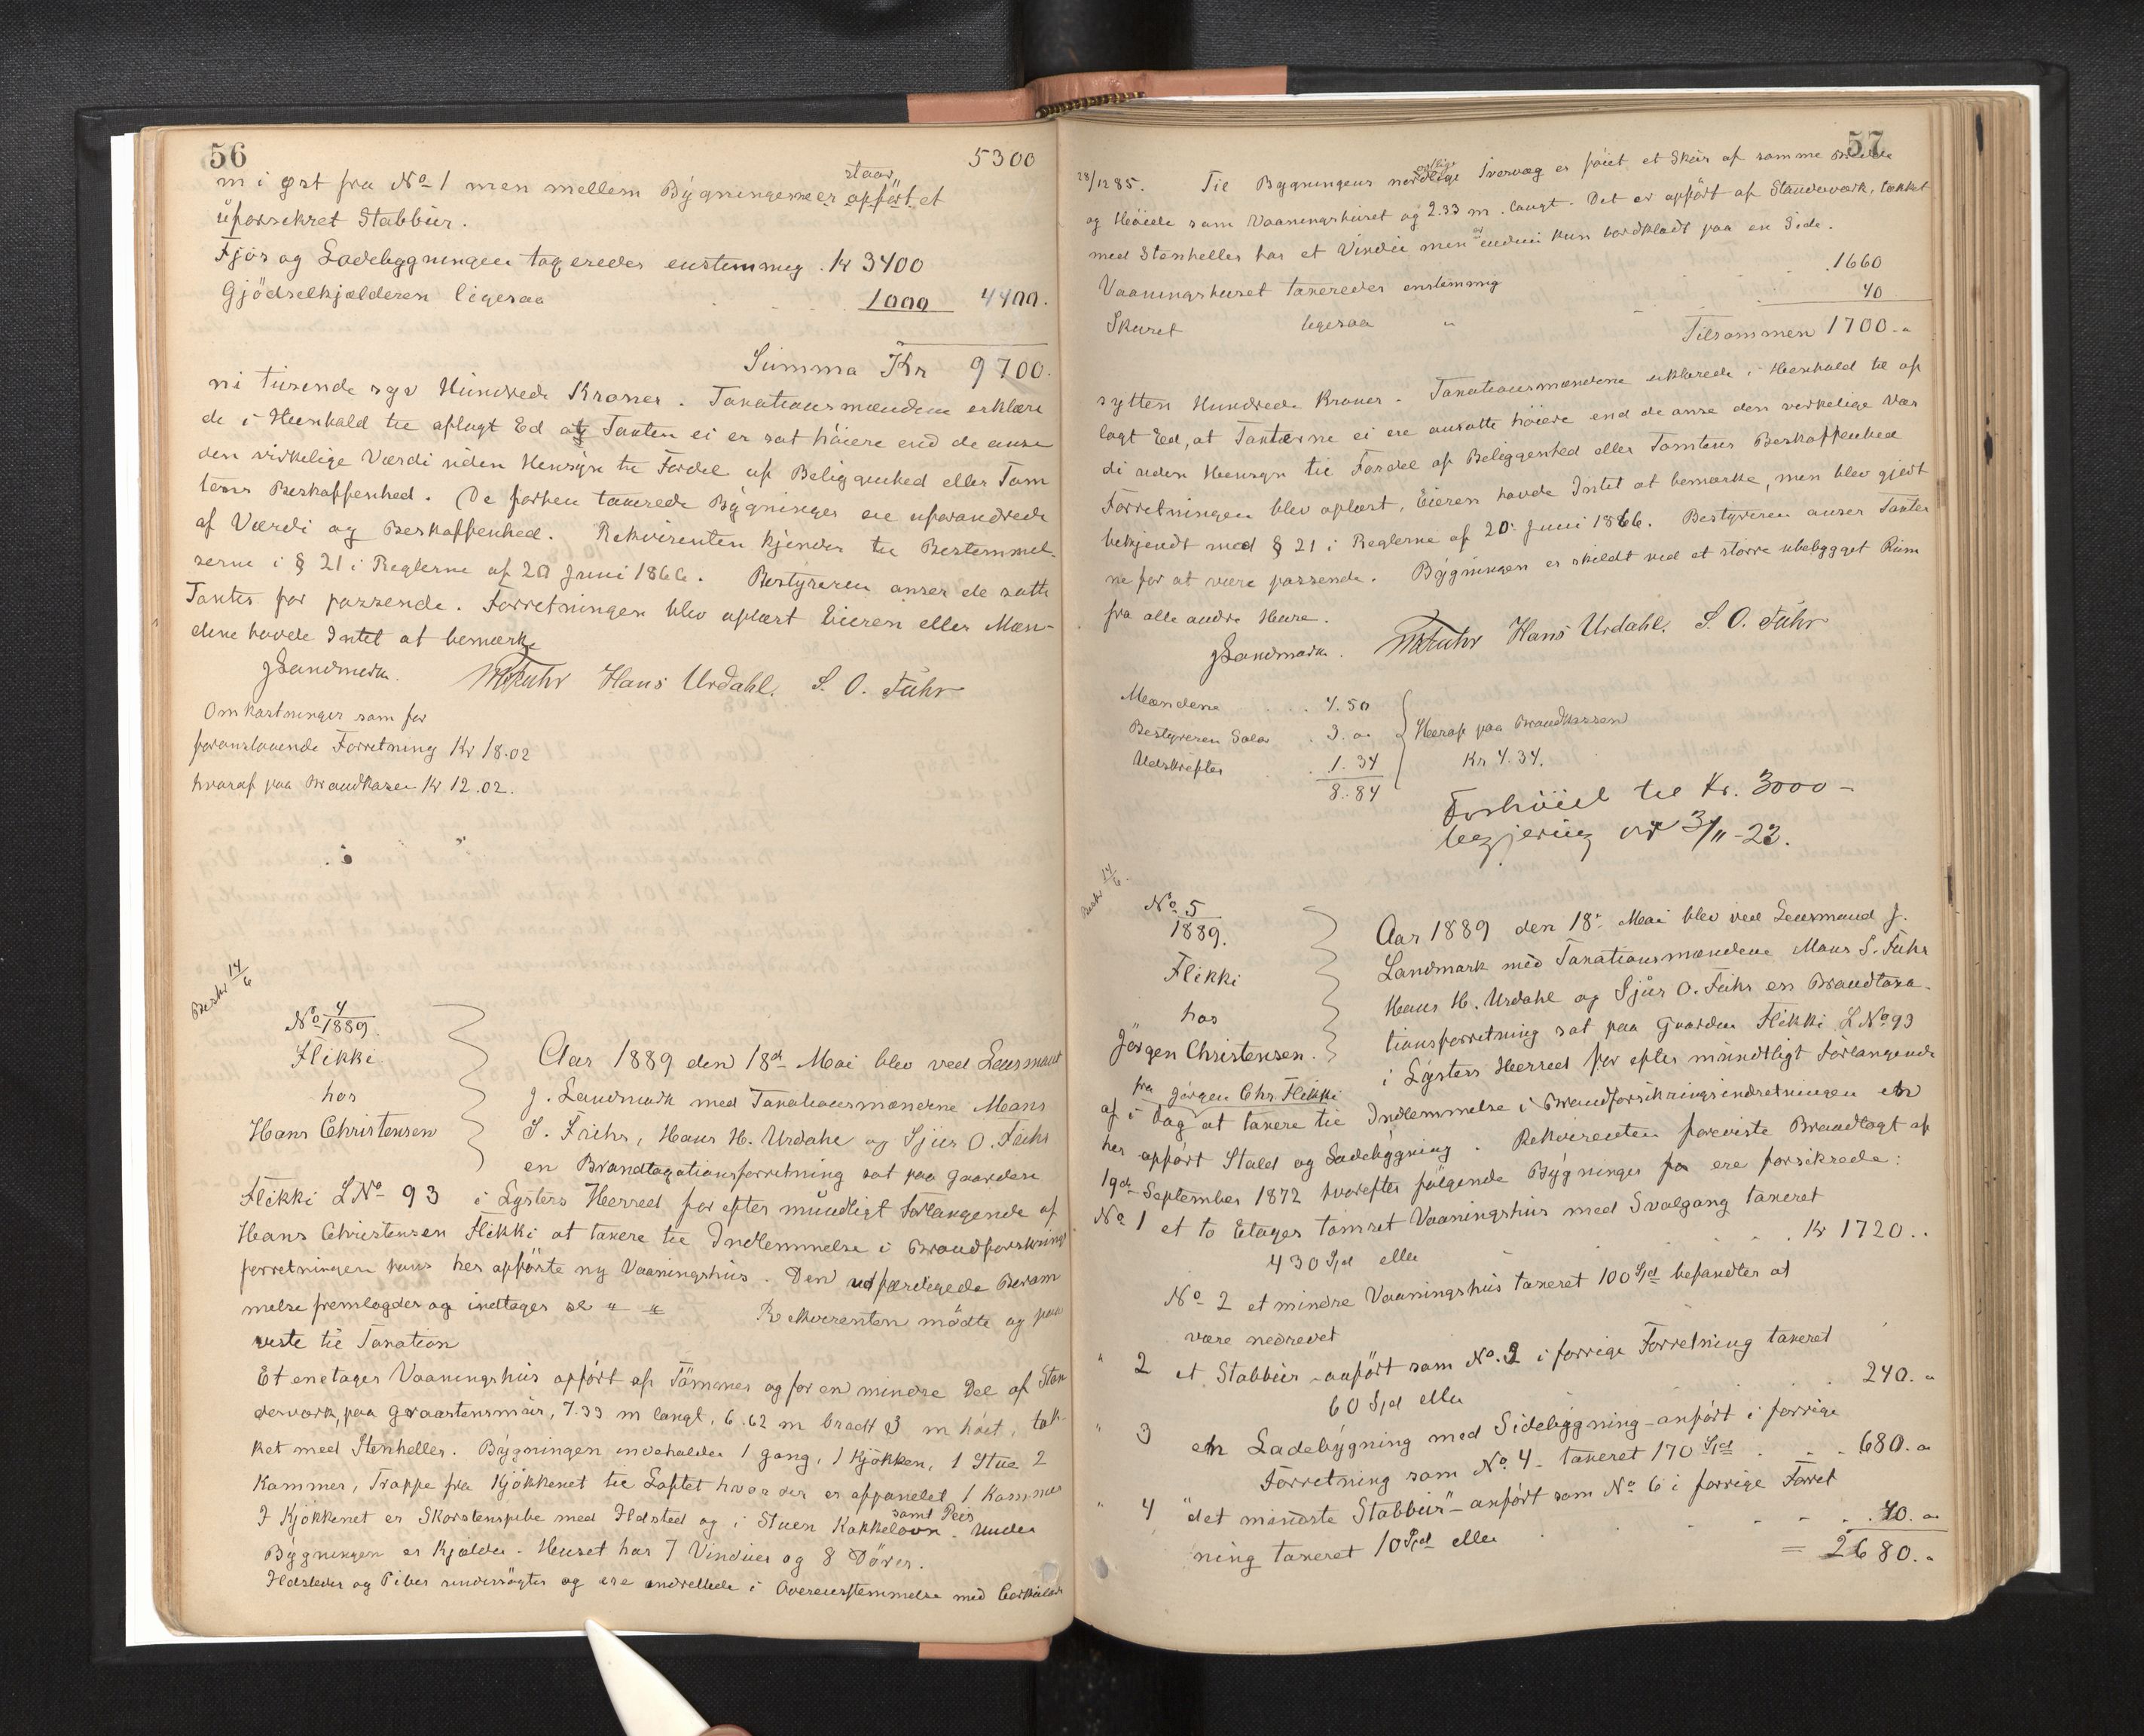 56
5300
m i øst fra No 1 men mellem Bygningerne er staar opført et
uforsikret Stabbur.
Fjøs og Ladebyggningen taxeredes enstemmig . Kr 3400
Gjødselkjælderen ligesaa 1000 4400.
Summa Kr 9700.
ni tusende syv Hundrede Kroner. Taxationsmændene erklære
de i Henhold til aflagt Ed at Taxten ei er sat høiere end de anse
den virkelige Værdi uden Hensyn til Fordel af Beliggenhed eller Tom
tens Beskaffenhed. De forhen taxerede Bygninger ere uforandrede
af Værdi og Beskaffenhed. Rekvirenten kjender til Bestemmel-
serne i § 21 i Reglerne af 20 Juni 1866. Bestyreren anser de satte
Taxter for passende. Forretningen blev oplæst Eieren eller Mæn-
dene havde Intet at bemærke
J Landmark. Hans Urdahl. S. O. Fuhr
Omkostninger som for
foranstaaende Forretning Kr 18.02
hvoraf paa Brandkasen Kr 12.02.
Beskr 14/6
No 4/1889.
Flikki
hos
Hans Christensen
Aar 1889 den 18de Mai blev ved Lensmand
J. Landmark med Taxationsmændene Mons
S. Fuhr, Hans H. Urdahl og Sjur O. Fuhr
en Brandtaxationsforretning sat paa Gaarden
Flikki LNo 93 i Lysters Herred for efter mundtligt Forlangende af
Hans Christensen Flikki at taxere til Indlemmelse i Brandforsikrings
forretningen hans her opførte ny Vaaningshus. Den udfærdigede Beram
melse fremlagdes og indtages " " Rekvirenten mødte og paa
viste til Taxation
Et enetages Vaaningshus opført af Tømmer og for en mindre Del af Stan
derværk, paa Graastensmur, 7.33 m langt, 6.62 m bredt 3 m høit, tæk-
ket med Stenheller. Bygningen indeholder 1 Gang, 1 Kjøkken, 1 Stue 2
Kammer, Trappe fra Kjøkkenet til Loftet hvor der er afpanelet 1 Kammer
I Kjøkkenet er Skorstenspibe med Ildsted og i Stuen Kakkelovn samt Peis. Under
Bygningen er Kjælder. Huset har 7 Vinduer og 8 Dører.
Ildsteder og Piber undersøgtes og ere indrettede i Overensstemmelse med
57
28/12 85. Til Bygningens nordlige Tvervæg er føiet et Skur af samme Bredde
og Høide som Vaaningshuset og 2.33 m. langt. Det er opført af Standerværk, tækket
med Stenheller har et Vindu men er endnu kun bordklædt paa en Side.
Vaaningshuset taxeredes enstemmig 1660
Skuret ligesaa " 40
Tilsammen 1700. "
sytten Hundrede Kroner. Taxationsmændene erklærede i Henhold til af
lagt Ed, at Taxterne ei ere ansatte høiere end de anse den virkelige Vær
di uden Hensyn til Fordel af Beliggenhed eller Tomtens Beskaffenhed
Forretningen blev oplæst, Eieren havde Intet at bemærke, men blev gjort
bekjendt med § 21 i Reglerne af 20. Juni 1866. Bestyreren anser Taxter
ne for at være passende. Bygningen er skildt ved et større ubebygget Rum
fra alle andre Huse.
J Landmark. Hans Urdahl. S. O. Fuhr
Mændene . . . 4.50
Bestyreren Salær . 3. "
Udskrifter . 1.34
8.84
Heraf paa Brandkassen
Kr 4.34.
Forhøiet til Kr. 3000 -
begjering av 3/11-23.
Beskr 14/6.
No 5/1889.
Flikki
hos
Jørgen Christensen.
Aar 1889 den 18de Mai blev ved Lensmand J.
Landmark med Taxationsmændene Mons S. Fuhr
Hans H. Urdahl og Sjur O. Fuhr en Brandtaxa-
tionsforretning sat paa Gaarden Flikki LNo 93
i Lysters Herred for efter mundtligt Forlangende
fra Jørgen Chr. Flikki
af i Dag at taxere til Indlemmelse i Brandforsikringsindretningen en
her opført Stald og Ladebygning. Rekvirenten foreviste Brandtaxt af
19de September 1872 hvorefter følgende Bygninger ere forsikrede:
No 1 et to Etages tømret Vaaningshus med Svalgang taxeret
430 Spd eller . . Kr 1720. .
No 2 et mindre Vaaningshus taxeret 100 Spd befandtes at
være nedrevet
" 2 et Stabbur - anført som No. 3 i forrige Forretning taxeret
60 Spd eller . 240. "
" 3 en Ladebygning med Sidebygning - anført i forrige
Forretning som No 4 - taxeret 170 Spd . . . 680. "
" 4 "det mindste Stabbur" - anført som No 6 i forrige Forret
ning taxeret 10 Spd eller . . . 40. "
= 2680. "